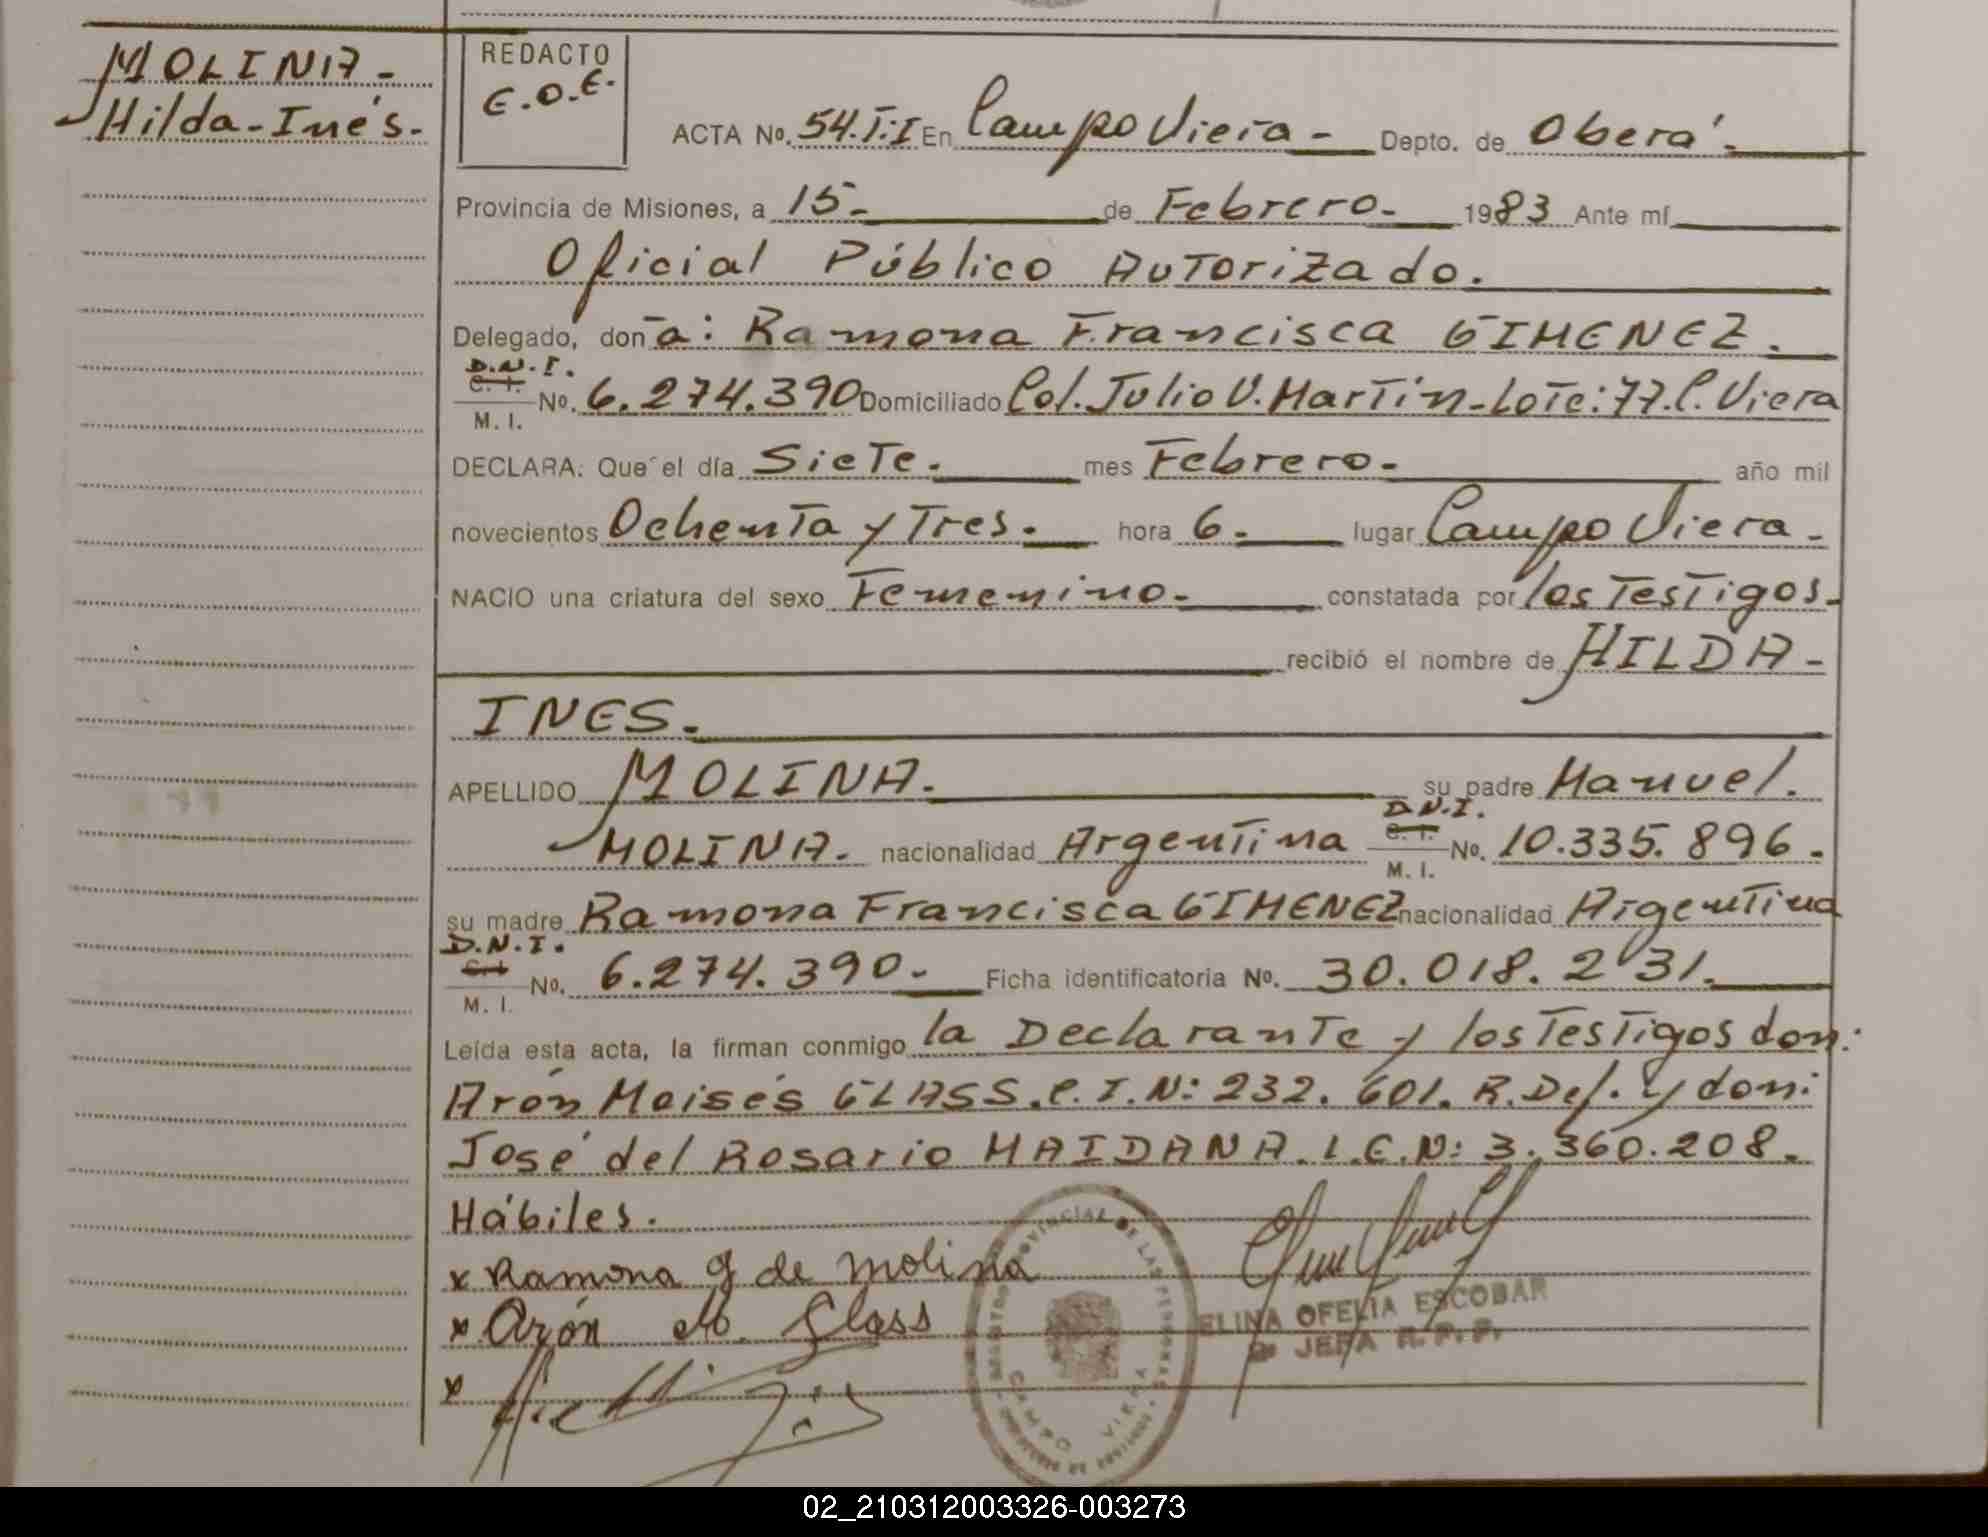 MOLINA-
Hilda-Inés.-
REDACTO
E.O.E.
ACTA No. 54.T:I En Campo Viera - Depto. de Oberá.-
Provincia de Misiones, a 15.- de Febrero.- 1983 Ante mí
Oficial Público Autorizado.
Delegado, don a: Ramona Francisca GIMENEZ.
D.N.I.
C. I.
M. I.
No. 6.274.390 Domiciliado Col. Julio U. Martín-Lote: 77. C. Viera
DECLARA: Que el día Siete. mes Febrero.- año mil
novecientos Ochenta y Tres.- hora 6.- lugar Campo Viera.-
NACIO una criatura del sexo Femenino.- constatada por los Testigos.-
recibió el nombre de HILDA-
INES.-
APELLIDO MOLINA.- su padre Manuel.
D.N.I.
MOLINA.- nacionalidad Argentina C. I. No. 10.335.896.-
M. I.
su madre Ramona Francisca GIMENEZ nacionalidad Argentina
D.N.I.
C. I.
M. I.
No. 6.274.390.- Ficha identificatoria No. 30.018.231.
Leída esta acta, la firman conmigo la Declarante y los Testigos don:
Arón Moisés GLASS. C.I.N: 232.601. R.Def. y don:
José del Rosario MAIDANA. L.E.N: 3.360.208.-
Hábiles.
x Ramona G de Molina
x Arón M. Glass
x
REGISTRO PROVINCIAL DE LAS PERSONAS
CAMPO VIERA
ELINA OFELIA ESCOBAR
JEFA R.P.P.
02_210312003326-003273